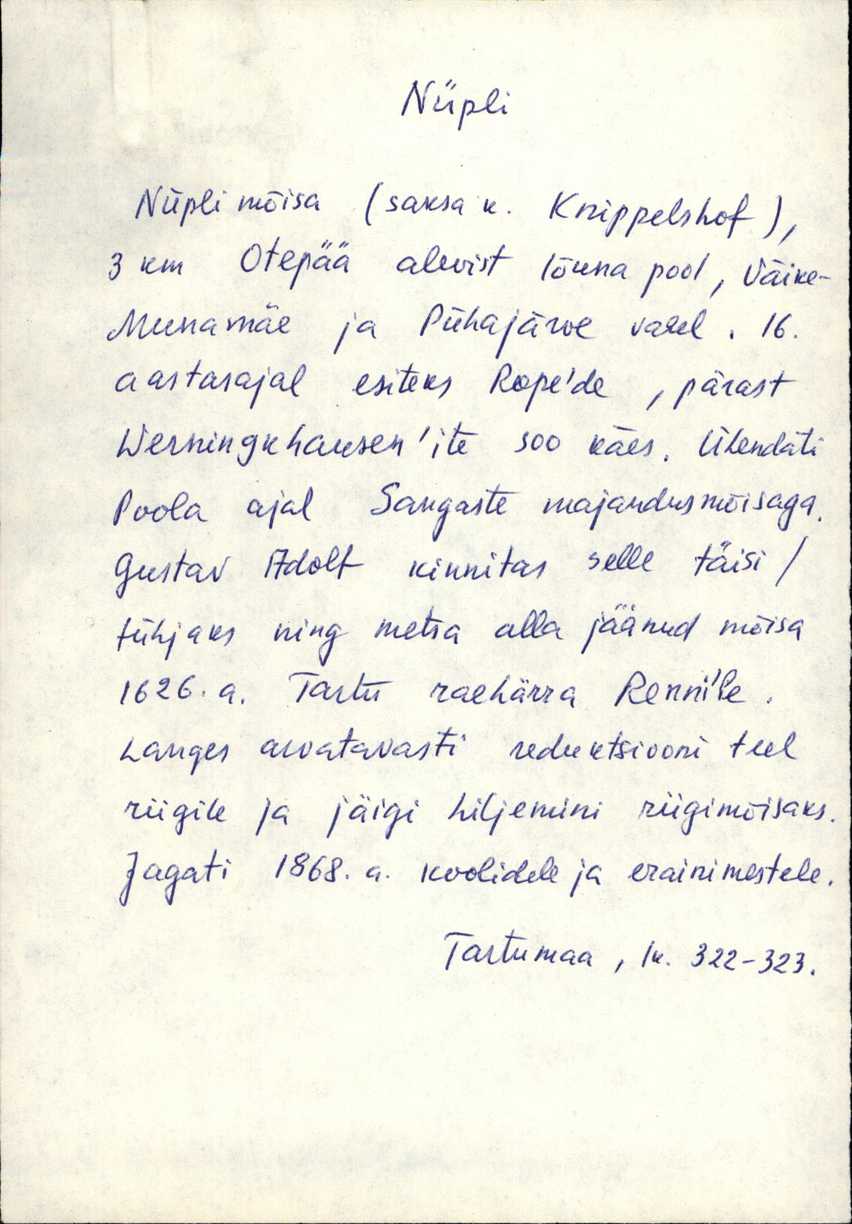 Nüpli
Nüpli mõisa (saksa k. Knippelshof),
3 km Otepää alevist lõuna pool, Väike-
Munamäe ja Pühajärve vahel. 16.
aastasajal esiteks Rope'de, pärast
Werningkhausen'ite soo käes. Ühendati
Poola ajal Sangaste majandusmõisaga.
Gustav Adolf kinnitas selle täisi /
tühjaks ning metsa alla jäänud mõisa
1626. a. Tartu raehärra Renni'le.
Langes arvatavasti reduktsiooni teel
riigile ja jäigi hiljemini riigimõisaks.
Jagati 1868. a. koolidele ja erainimestele.
Tartumaa, lk. 322-323.